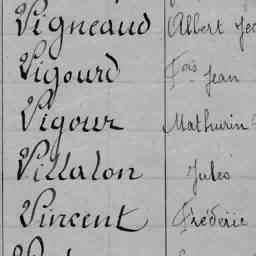 Vigneaud Albert
Vigourd Fois Jean
Vigour Mathurin
Villalon Jules
Vincent Frédéric